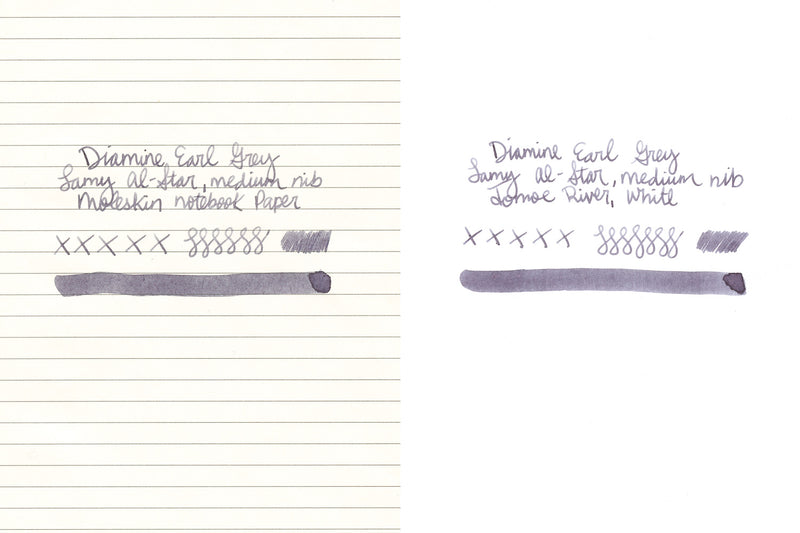 Diamine Earl Grey
Lamy Al-Star, medium nib
Moleskin notebook Paper
x x x x x
Diamine Earl Grey
Lamy Al-Star, medium nib
Tomoe River, White
x x x x x